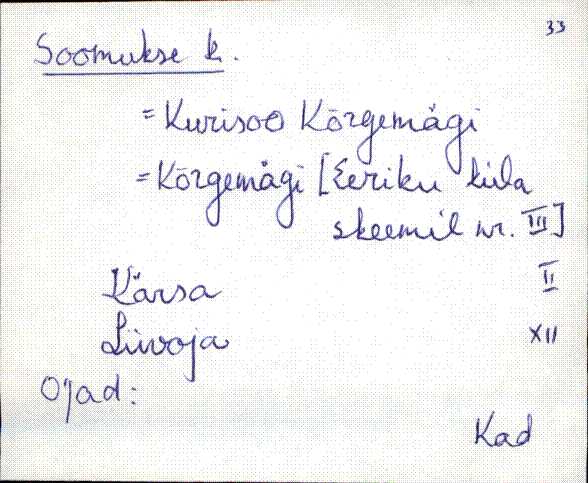 33
Soomukse k.
= Kurisoo Kõrgemägi
= Kõrgemägi [Eeriku küla
skeemil nr. III]
Kärsa II
Liivoja XII
Ojad:
Kad